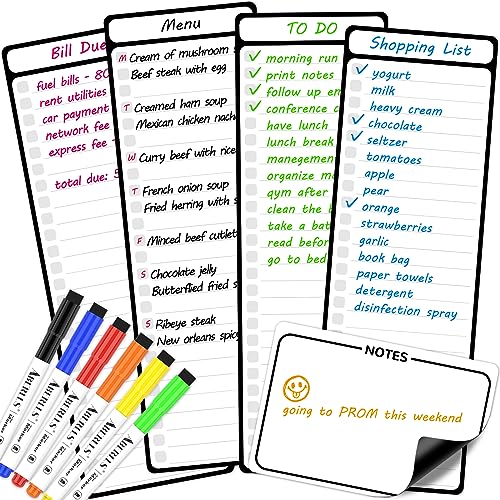 Bill Due
fuel bills - 80
rent utilities
car payment
network fee
express fee -
total due: 5
Menu
M Cream of mushroom s
Beef steak with egg
T Creamed ham soup
Mexican chicken nach
W Curry beef with rice
T French onion soup
Fried herring with s
F Minced beef cutlet
S Chocolate jelly
Butterflied fried s
S Ribeye steak
New orleans spic
TO DO
morning run
print notes
follow up em
conference c
have lunch
lunch break
manegement
organize m
gym after
clean the b
take a bat
read before
go to bed
Shopping List
yogurt
milk
heavy cream
chocolate
seltzer
tomatoes
apple
pear
orange
strawberries
garlic
book bag
paper towels
detergent
disinfection spray
NOTES
going to PROM this weekend